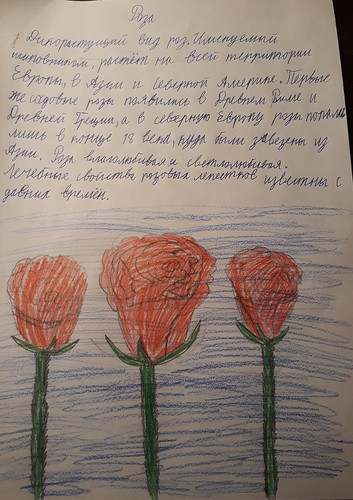 Роза
Дикорастущий вид роз. Именуемый
шиповником, растёт на всей территории
Европы, в Азии и Северной Америке. Первые
же садовые розы появились в Древнем Риме и
Древней Греции, а в северную Европу розы попали
лишь в конце 18 века, куда были завезены из
Азии. Роза влаголюбивая и светлолюбивая.
Лечебные свойства розовых лепестков известны с
давних времён.